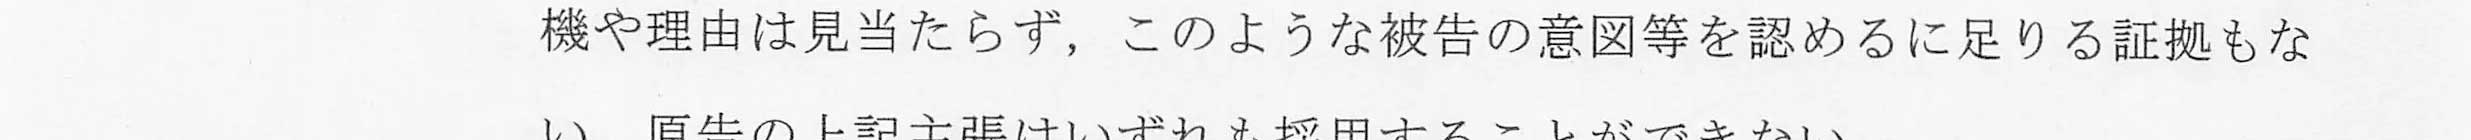 機や理由は見当たらず，このような被告の意図等を認めるに足りる証拠もな
い　原告の上記主張はいずれも採用することができない